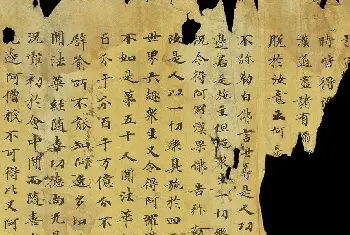 時皆得
漢道盡諸有
脫於汝意云何是
不弥勒白佛言世尊是人功
邊若是施主但施眾生一切
況令得阿羅漢果佛告弥
汝是人以一切樂具施於四
世界六趣眾生又令得阿羅
不如是第五十人聞法華
百分千分百千万億分不
譬喻所不能知阿逸多如
聞法華經隨喜功德尚无量
況最初於會中聞而隨喜
无邊阿僧祇不可得比又阿